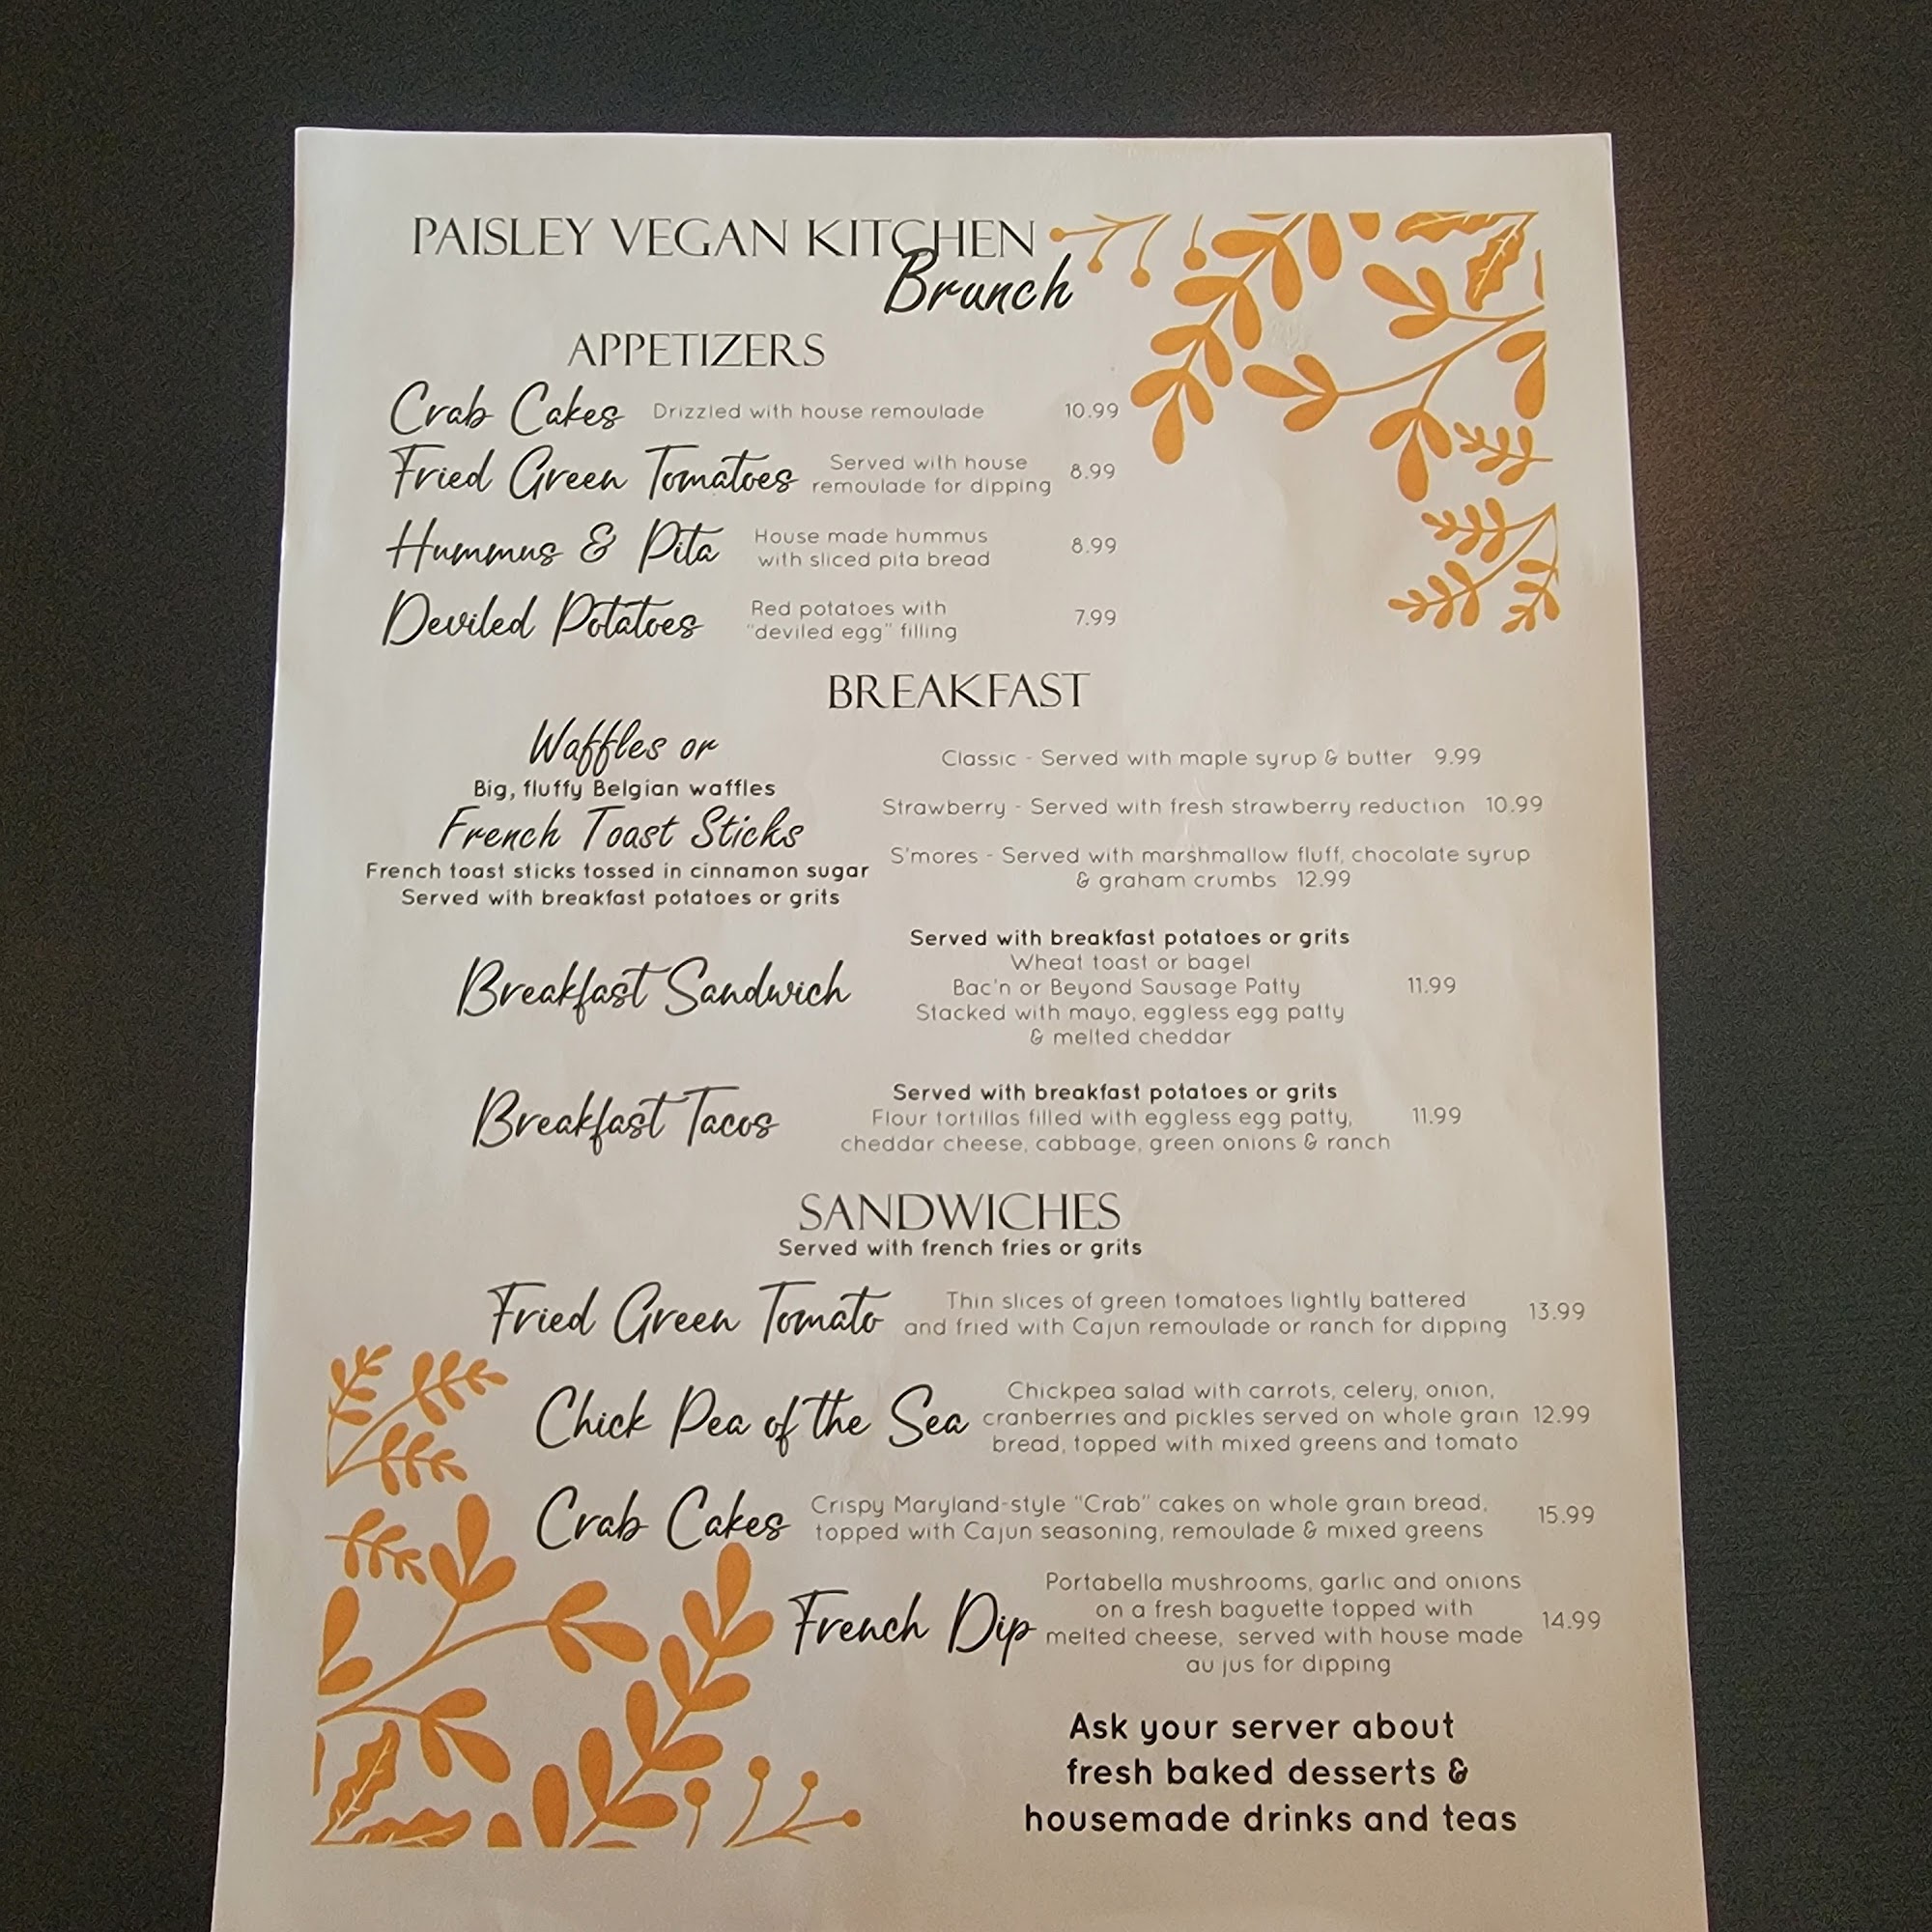 PAISLEY VEGAN KITCHEN
Brunch
APPETIZERS
Crab Cakes Drizzled with house remoulade 10.99
Fried Green Tomatoes Served with house remoulade for dipping 8.99
Hummus & Pita House made hummus with sliced pita bread 8.99
Deviled Potatoes Red potatoes with "deviled egg" filling 7.99
BREAKFAST
Waffles or
Big, fluffy Belgian waffles
French Toast Sticks
French toast sticks tossed in cinnamon sugar
Served with breakfast potatoes or grits
Classic - Served with maple syrup & butter 9.99
Strawberry - Served with fresh strawberry reduction 10.99
S'mores - Served with marshmallow fluff, chocolate syrup
& graham crumbs 12.99
Breakfast Sandwich
Served with breakfast potatoes or grits
Wheat toast or bagel
Bac'n or Beyond Sausage Patty 11.99
Stacked with mayo, eggless egg patty
& melted cheddar
Breakfast Tacos
Served with breakfast potatoes or grits
Flour tortillas filled with eggless egg patty, 11.99
cheddar cheese, cabbage, green onions & ranch
SANDWICHES
Served with french fries or grits
Fried Green Tomato
Thin slices of green tomatoes lightly battered
and fried with Cajun remoulade or ranch for dipping 13.99
Chick Pea of the Sea
Chickpea salad with carrots, celery, onion,
cranberries and pickles served on whole grain 12.99
bread, topped with mixed greens and tomato
Crab Cakes
Crispy Maryland-style "Crab" cakes on whole grain bread,
topped with Cajun seasoning, remoulade & mixed greens 15.99
French Dip
Portabella mushrooms, garlic and onions
on a fresh baguette topped with
melted cheese, served with house made 14.99
au jus for dipping
Ask your server about
fresh baked desserts &
housemade drinks and teas